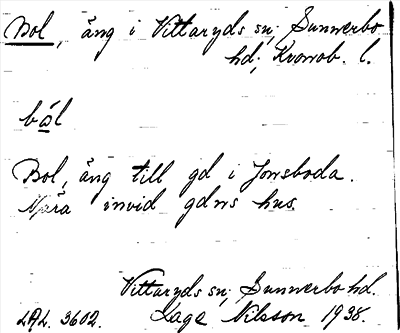 Bol, äng i Vittaryds sn; Sunnerbo
hd; Kronob. l.
bål
Bol, äng till gd i Jonsboda.
Nära invid gdns hus.
Vittaryds sn; Sunnerbo hd.
LAL. 3602. Lage Nilsson 1938.